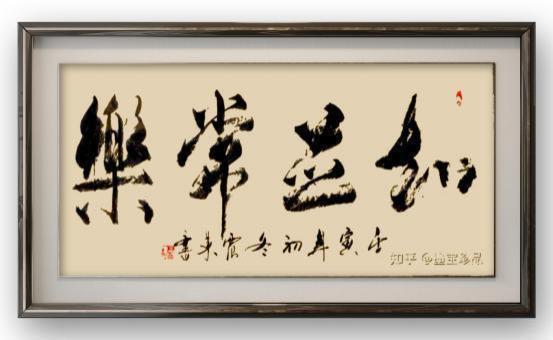 知足常樂
壬寅年初冬書
知乎